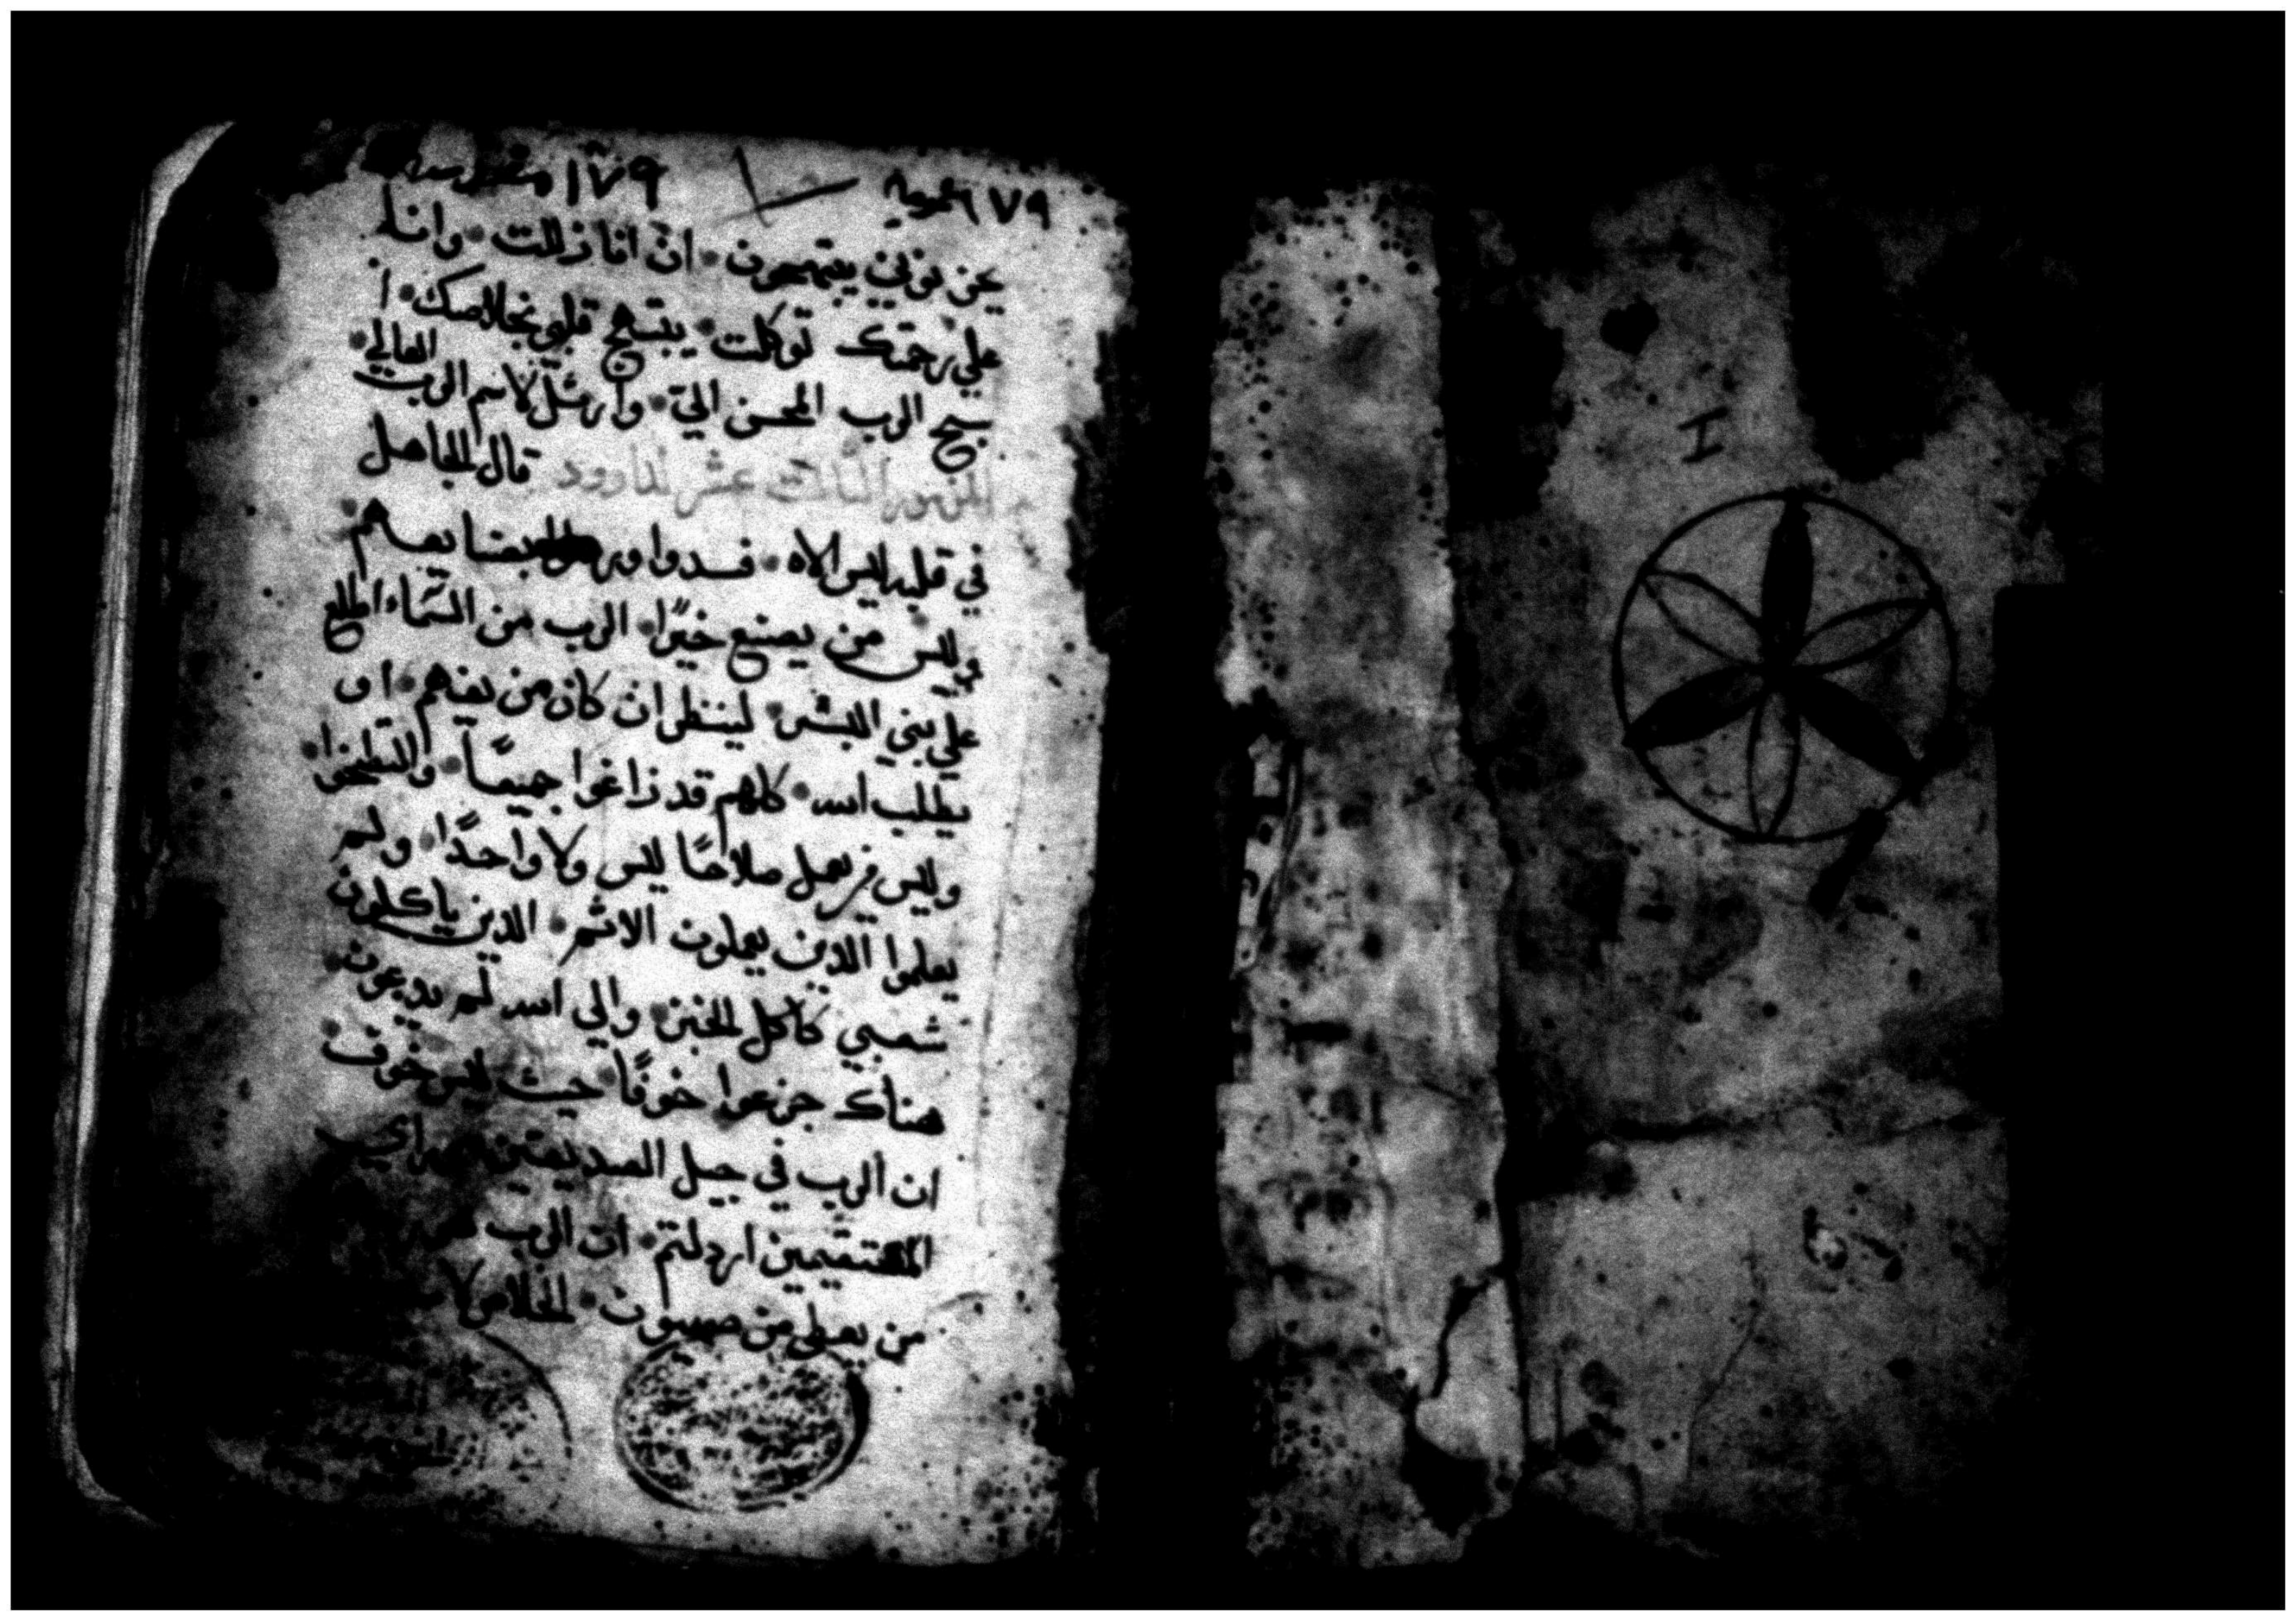 ١٧٩
٦٧٩ عمومية
يحزنونني يبتهجون • ان انا زللت • وانا
علي رحمتك توكلت • يبتهج قلبي بخلاصك • ا
سبح الرب المحسن اليّ • وارتل لاسم الرب العالي •
المزمور الثالث عشر لداوود قال الجاهل
في قلبه ليس الاه • فسدوا
وليس من يصنع خيرًا • الرب من السماء اطلع
علي بني البشر • لينظر ان كان من يفهم • او
يطلب اسه • كلهم قد زاغوا جميعاً • والتطخوا •
وليس من يعمل صلاحًا ليس ولا واحدًا • ولم
يعلموا الذين يعملون الاثم • الذين ياكلون
شعبي كاكل الخبز • والي اسه لم يدعون •
هناك جزعوا خوفًا • حيث ليس خوف •
ان الرب في جيل الصديقين راي
ارذلتم • ان الرب
من يعطي من صهيون • الخلاص لا
I